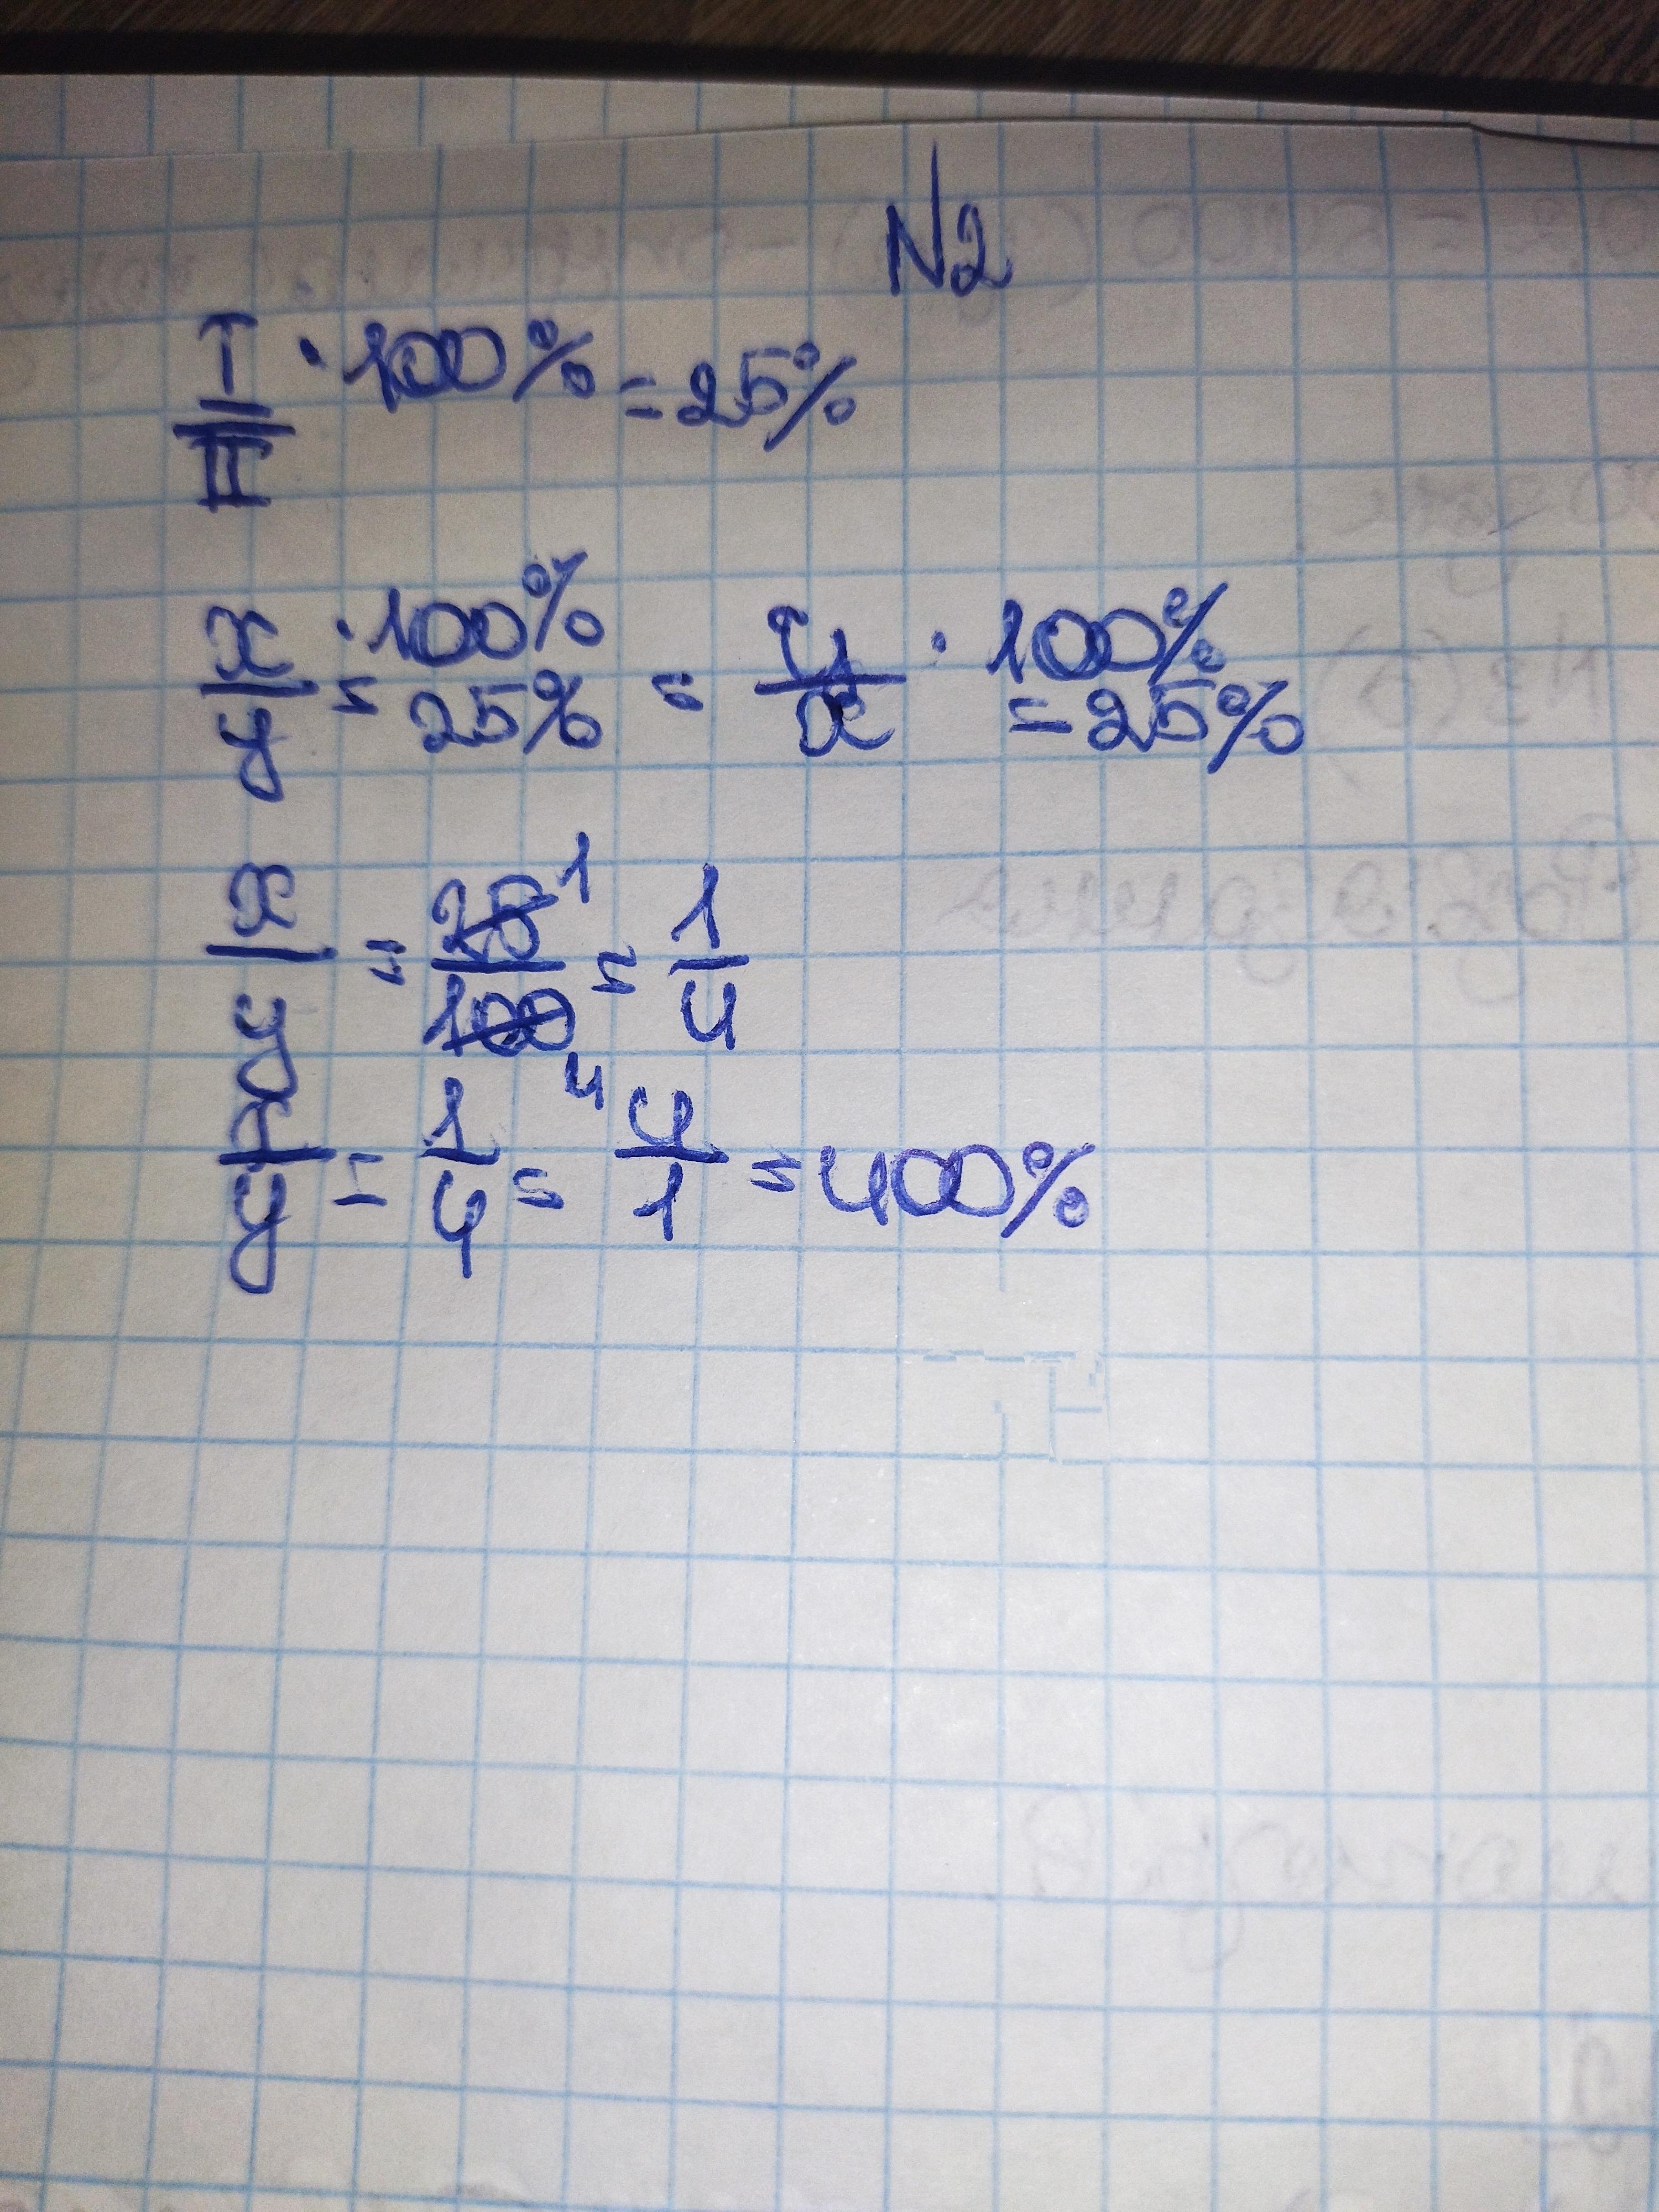 N2
I/II · 100% = 25%
x/y · 100% = 25% = y/x · 100% = 25%
x/y = 25 1/100 4 = 1/4
x/y = 1/4 = 4/1 = 400%